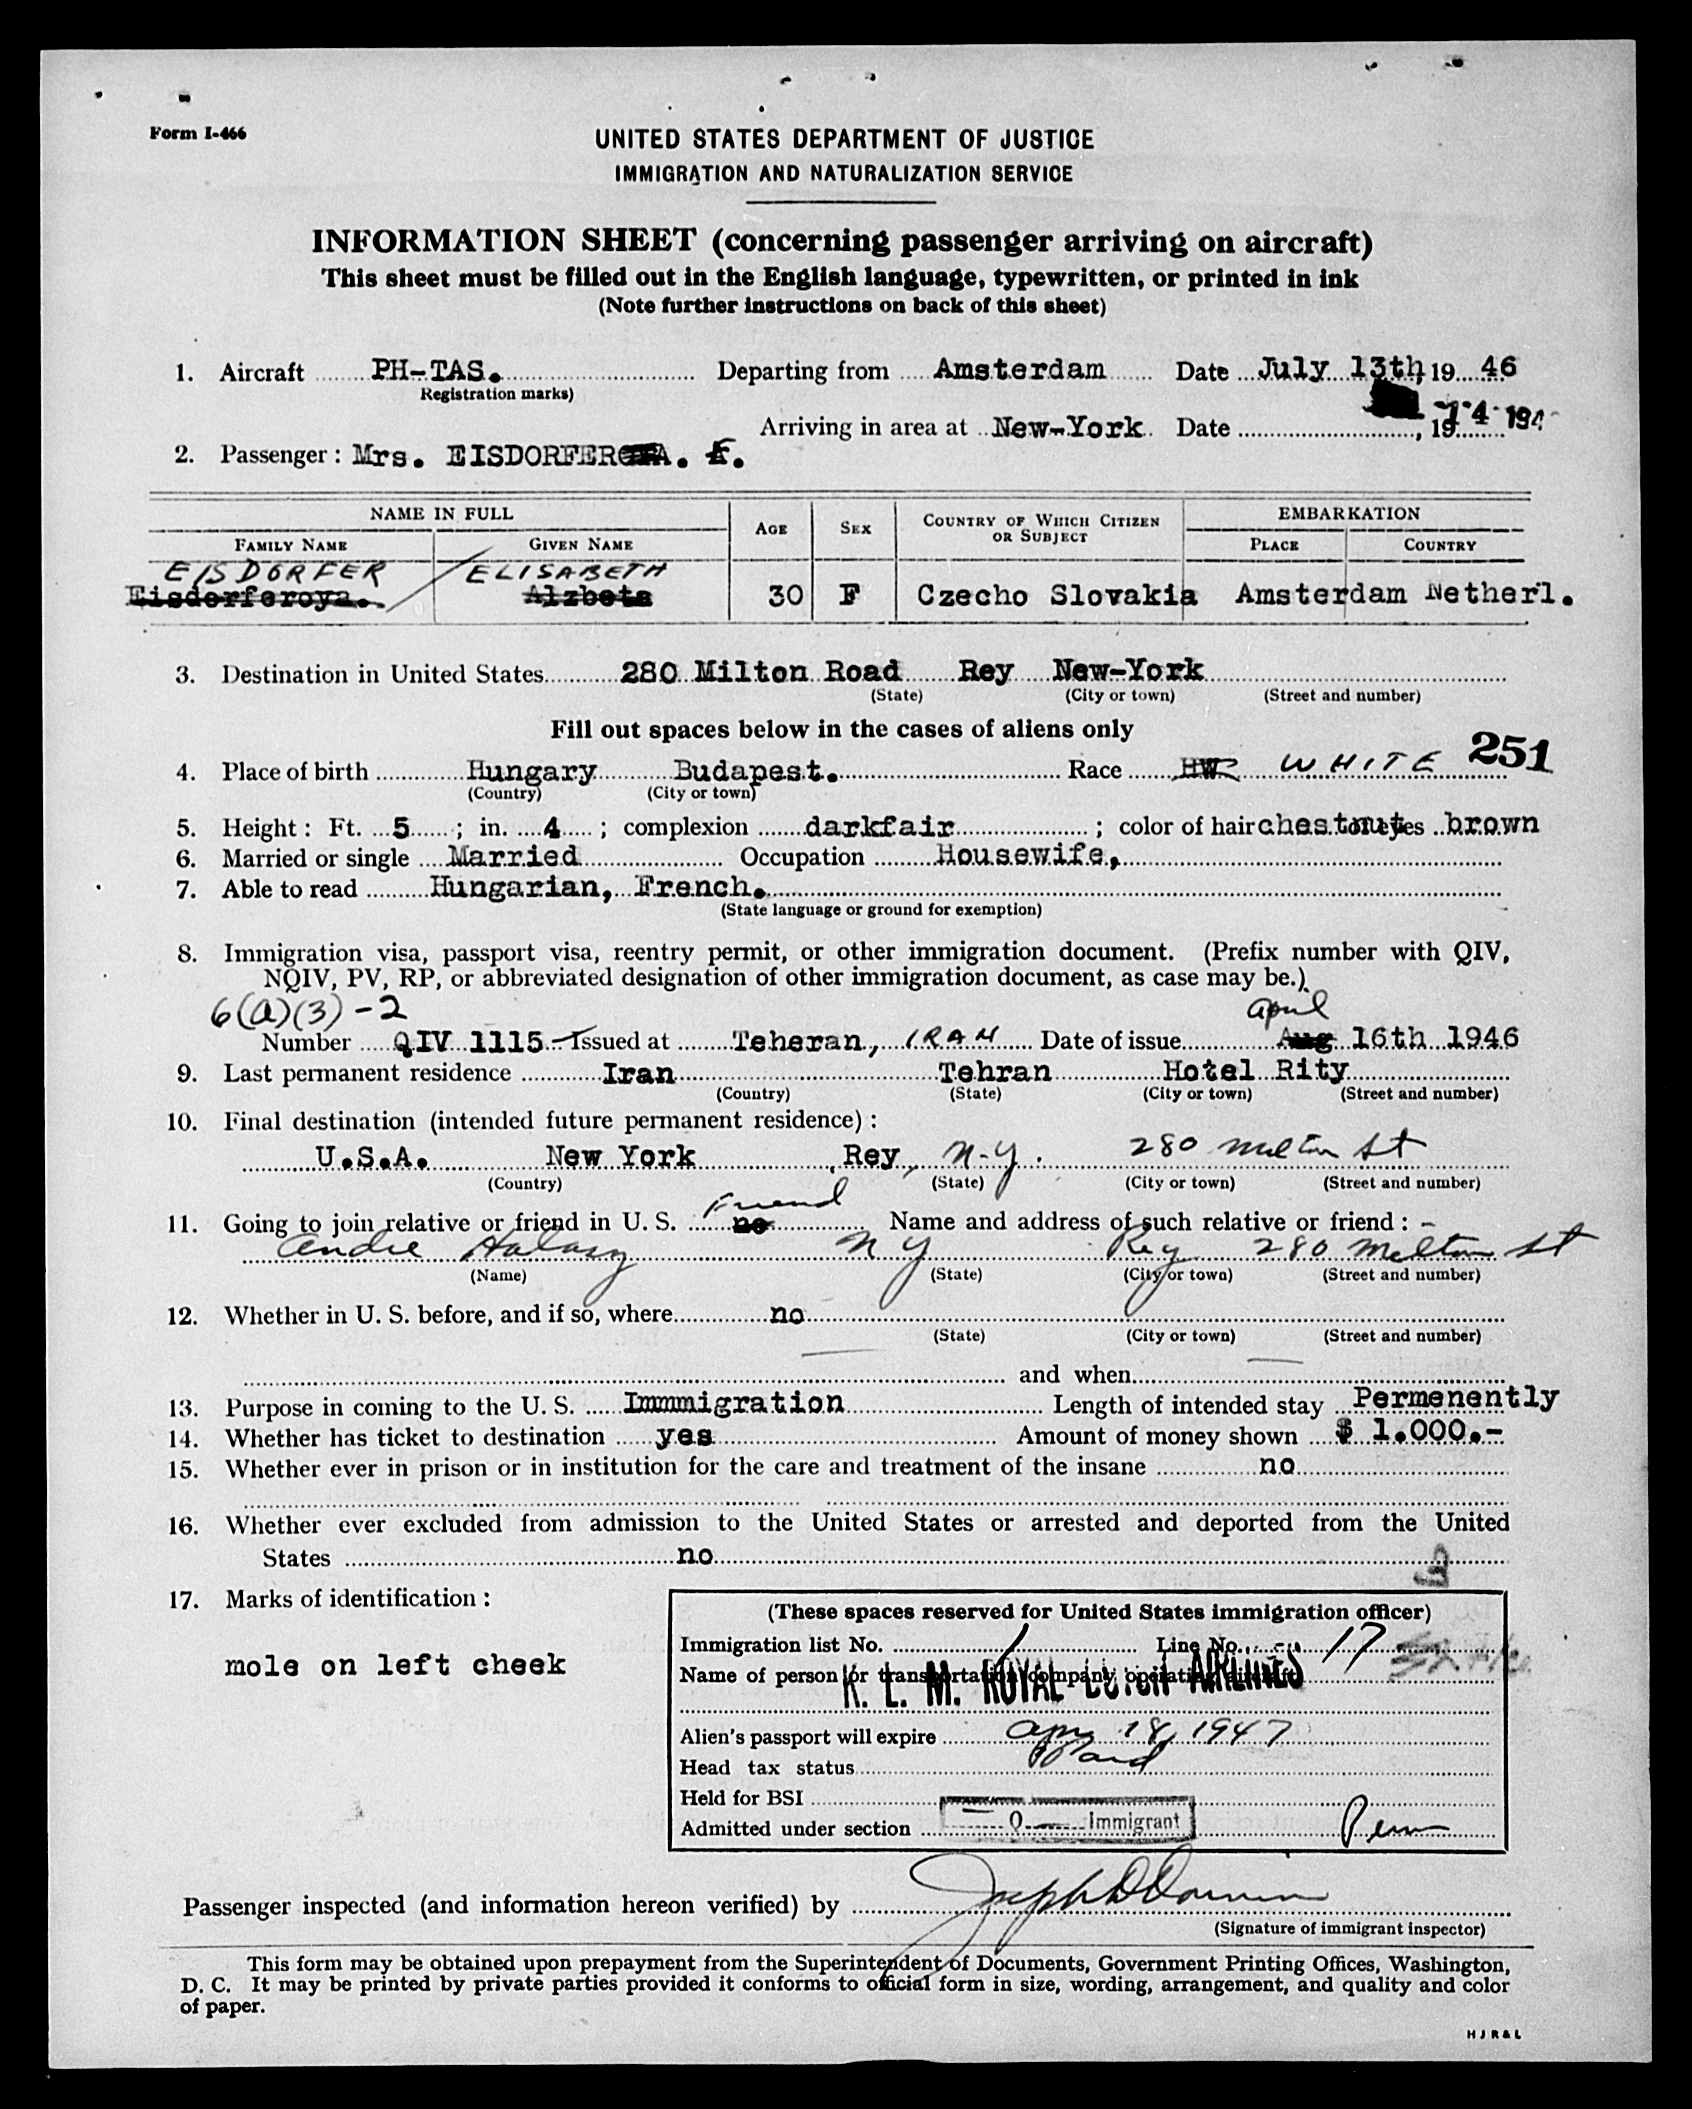 Form I-466
UNITED STATES DEPARTMENT OF JUSTICE
IMMIGRATION AND NATURALIZATION SERVICE
INFORMATION SHEET (concerning passenger arriving on aircraft)
This sheet must be filled out in the English language, typewritten, or printed in ink
(Note further instructions on back of this sheet)
1. Aircraft PH-TAS. Departing from Amsterdam Date July 13th, 19 46
(Registration marks)
Arriving in area at New-York Date , 19 14 194
2. Passenger : Mrs. EISDORFER A. E.
NAME IN FULL AGE SEX COUNTRY OF WHICH CITIZEN OR SUBJECT EMBARKATION
FAMILY NAME GIVEN NAME PLACE COUNTRY
EISDORFER ELISABETH
Eisdorferoya. Alzbeta 30 F Czecho Slovakia Amsterdam Netherl.
3. Destination in United States 280 Milton Road Rey New-York
(State) (City or town) (Street and number)
Fill out spaces below in the cases of aliens only
251
4. Place of birth Hungary Budapest. Race HW WHITE
(Country) (City or town)
5. Height : Ft. 5 ; in. 4 ; complexion darkfair ; color of hair chestnut eyes brown
6. Married or single Married Occupation Housewife,
7. Able to read Hungarian, French.
(State language or ground for exemption)
8. Immigration visa, passport visa, reentry permit, or other immigration document. (Prefix number with QIV,
NQIV, PV, RP, or abbreviated designation of other immigration document, as case may be.)
6(a)(3)-2 april
Number QIV 1115 Issued at Teheran, IRAN Date of issue Aug 16th 1946
9. Last permanent residence Iran Tehran Hotel Rity
(Country) (State) (City or town) (Street and number)
10. Final destination (intended future permanent residence) :
U.S.A. New York Rey, N.Y. 280 Milton St
(Country) (State) (City or town) (Street and number)
Friend
11. Going to join relative or friend in U. S. no Name and address of such relative or friend : -
Andre Halasy N Y Rey 280 Milton St
(Name) (State) (City or town) (Street and number)
12. Whether in U. S. before, and if so, where no
(State) (City or town) (Street and number)
and when
13. Purpose in coming to the U. S. Immmigration Length of intended stay Permenently
14. Whether has ticket to destination yes Amount of money shown $ 1.000.-
15. Whether ever in prison or in institution for the care and treatment of the insane no
16. Whether ever excluded from admission to the United States or arrested and deported from the United
States no
17. Marks of identification :
mole on left cheek
(These spaces reserved for United States immigration officer)
Immigration list No. 1 Line No. 17
Name of person or transportation company operating aircraft
K. L. M. ROYAL DUTCH AIRLINES
Alien's passport will expire Apr 18, 1947
Head tax status Paid
Held for BSI
Admitted under section Q Immigrant Perm
Passenger inspected (and information hereon verified) by
(Signature of immigrant inspector)
This form may be obtained upon prepayment from the Superintendent of Documents, Government Printing Offices, Washington,
D. C. It may be printed by private parties provided it conforms to official form in size, wording, arrangement, and quality and color
of paper.
H J R & L